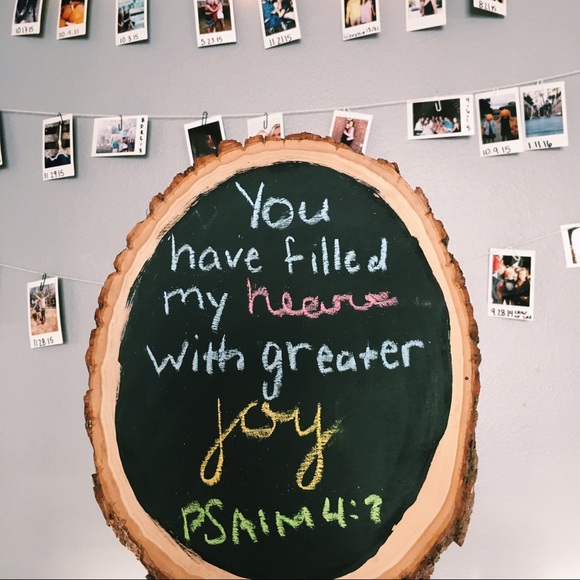 10.3.15
5.23.15
11.21.15
11.29.15
10.9.15
1.11.16
9.28.14
You
have filled
my heart
with greater
joy
PSAlM 4:7